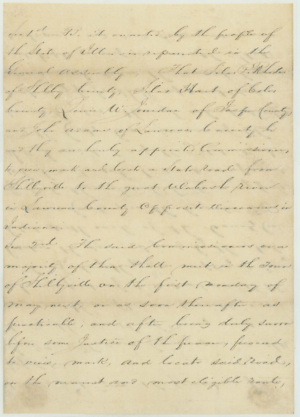 Sect 1. Be it enacted by the people of
the State of Illinois represented in the
General Assembly That
of Shelby County, of Coles
County of Jasper County
and of Lawrence County, be
and they are hereby appointed Commissioners,
to view mark and locate a State road from
Shelbyville to the great Wabash River
in Lawrence County Opposite Vincennes in
Indiana.
Sec 2nd. The said Commissioners or a
majority of them shall meet in the Town
of Shelbyville on the first Monday of
May next, or as soon thereafter as
practicable, and after being duly sworn
before some Justice of the peace, proceed
to view, mark, and locate said Road,
on the nearest and most eligible route,